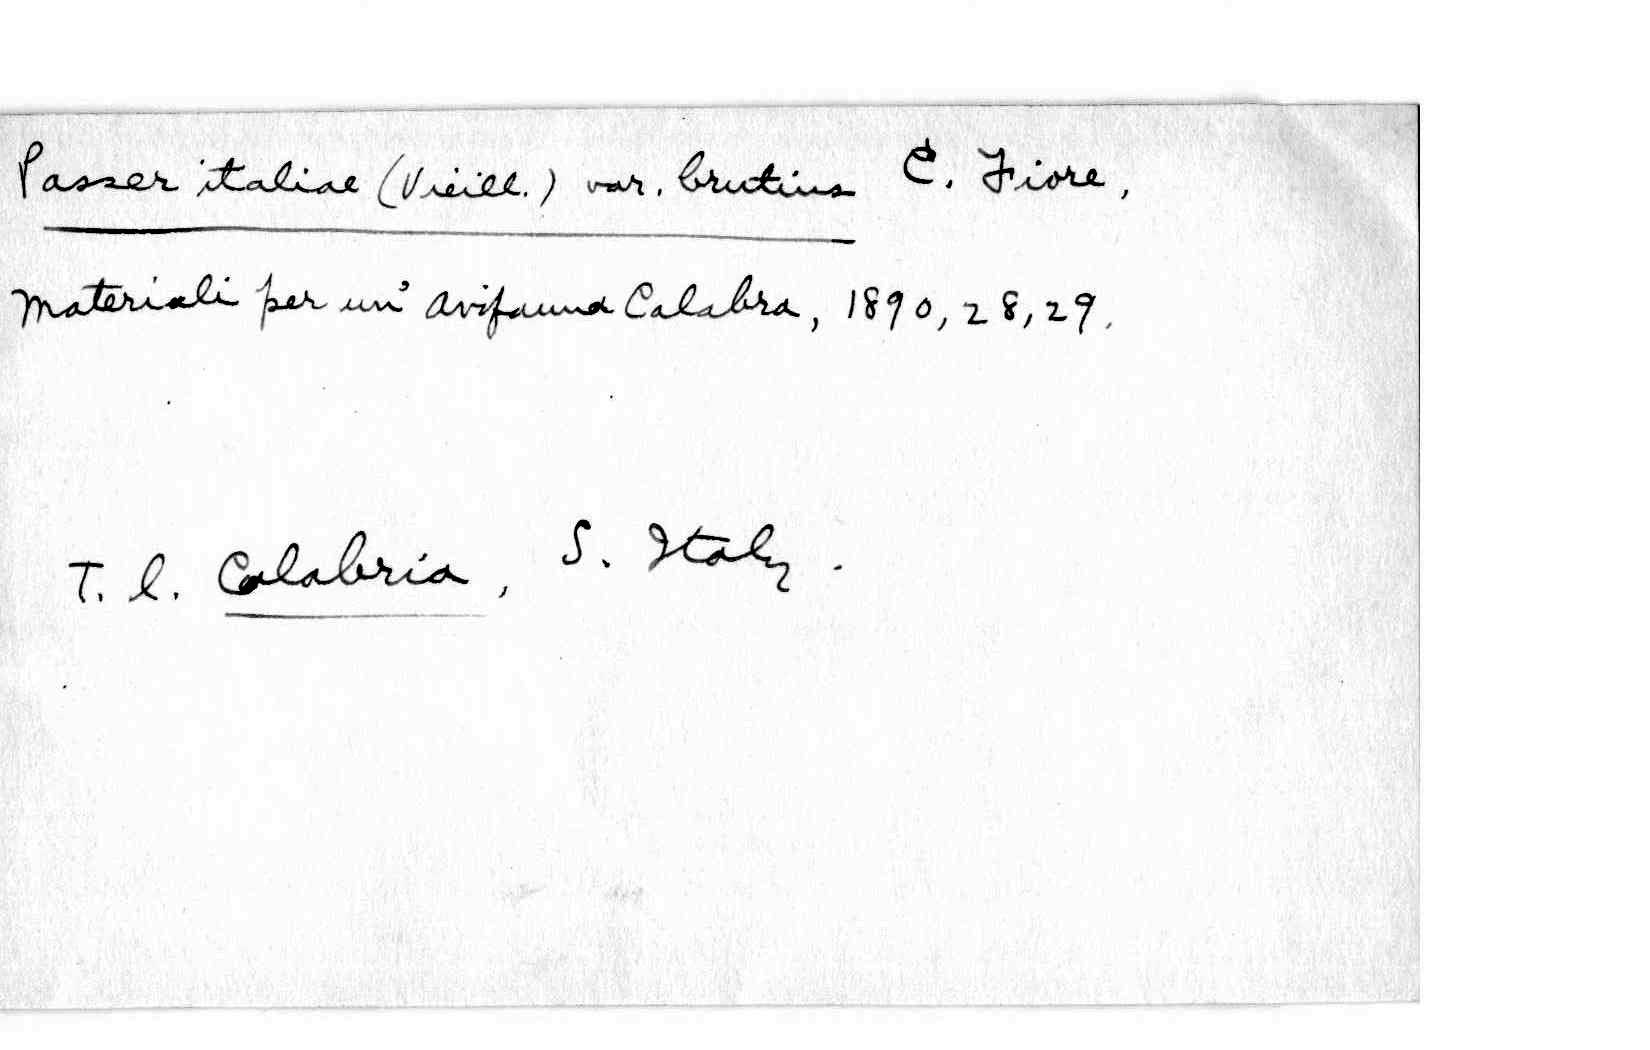 Passer italiae (Vieill.) var. brutius C. Fiore,
Materiali per un' avifauna Calabra, 1890, 28, 29.
T. l. Calabria, S. Italy.